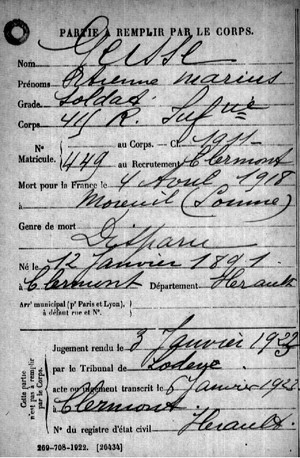 PARTIE À REMPLIR PAR LE CORPS.
Nom
Prénoms Etienne Marius
Grade Soldat
Corps R. Inf rie
N° Matricule. au Corps. — Cl. 1911
449 au Recrutement Clermont
Mort pour la France le 4 Avril 1918
à Moreuil (Somme)
Genre de mort Disparu
Né le 12 Janvier 1891
à Clermont Département Herault
Arr' municipal (p' Paris et Lyon),
à défaut rue et N°.
Cette partie n'est pas à remplir par le Corps.
Jugement rendu le 3 Janvier
par le Tribunal de Lodeve
acte ou jugement transcrit le Janvier
à Clermont
Herault
N° du registre d'état civil
269-708-1922. [26434]